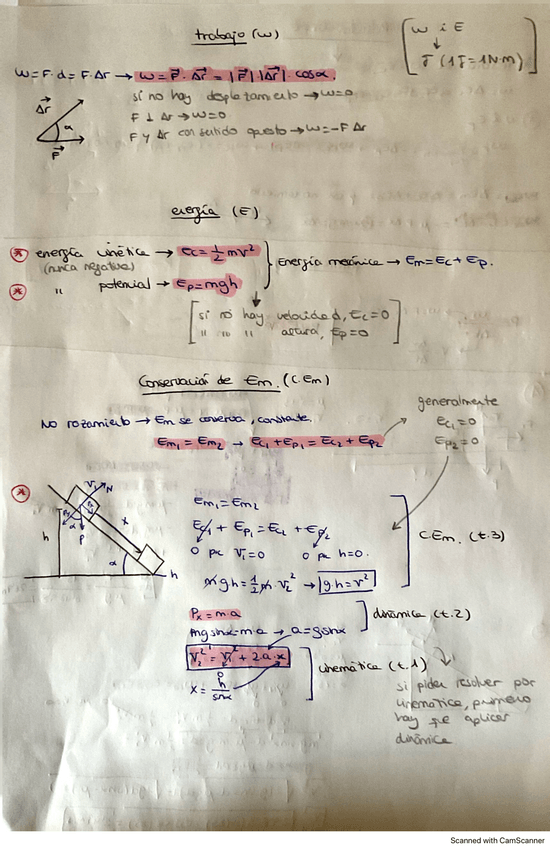 trabajo (w)
[w i E
J (1J = 1N·m)]
W = F·d = F·Δr → W = F⃗ · Δr⃗ = |F⃗| |Δr⃗| · cosα.
si no hay desplatamiento → W=0
F ⊥ Δr → W=0
F y Δr con sentido opuesto → W = -F Δr
Δr⃗
α
F⃗
energía (E)
* energía cinética → Ec = 1/2 mv²
(nunca negativa)
Energía mecánica → Em = Ec + Ep.
* " potenial → Ep = mgh
[si no hay velocidad, Ec = 0
" " " altura, Ep = 0]
Conservación de Em. (C.Em)
No rozamiento → Em se conserva, constante.
Em1 = Em2 → Ec1 + Ep1 = Ec2 + Ep2
generalmente
Ec1 = 0
Ep2 = 0
*
V1
N
P
x
h
α
α
h
Em1 = Em2
Ec1 + Ep1 = Ec2 + Ep2
0 pq V1=0 0 pq h=0.
C.Em. (t.3)
mgh = 1/2 m · v2² → g·h = v²
Px = m·a
mg sinα = m a → a = g sinα
dinámica (t.2)
V2² = V1² + 2a·x
0
x = h/sinα
cinemática (t.1)
si piden resolver por
cinemática, primero
hay que aplicar
dinámica
Scanned with CamScanner